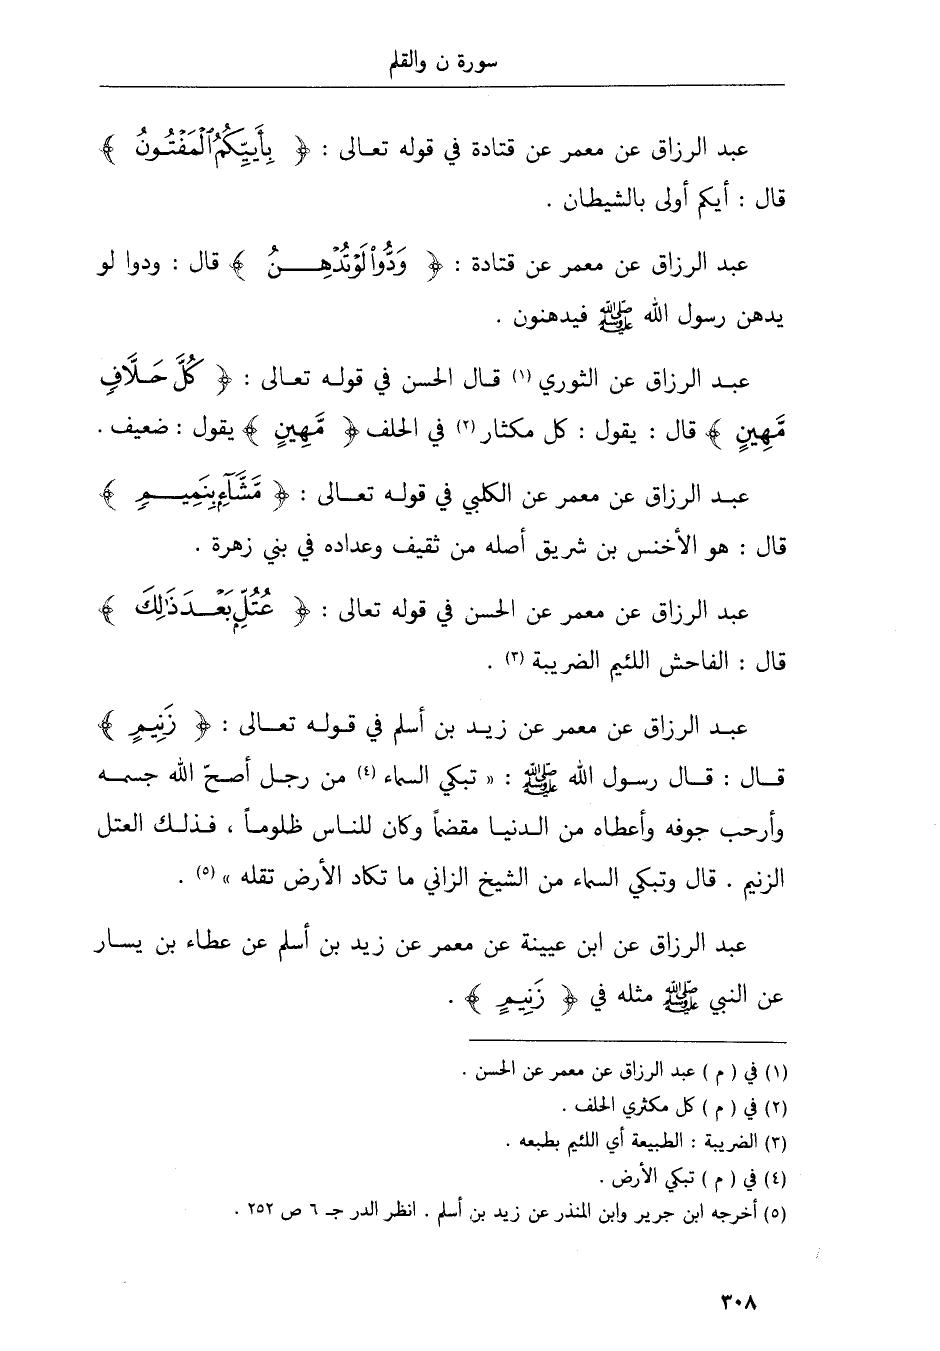 سورة ن والقلم
عبد الرزاق عن معمر عن قتادة في قوله تعالى : ﴿ بِأَييِّكُمُ ٱلْمَفْتُونُ ﴾
قال : أيكم أولى بالشيطان .
عبد الرزاق عن معمر عن قتادة : ﴿ وَدُّواْ لَوْ تُدْهِنُ ﴾ قال : ودوا لو
يدهن رسول الله ﷺ فيدهنون .
عبد الرزاق عن الثوري (١) قال الحسن في قوله تعالى : ﴿ كُلَّ حَلَّافٍ
مَّهِينٍ ﴾ قال : يقول : كل مكثار (٢) في الحلف ﴿ مَّهِينٍ ﴾ يقول : ضعيف .
عبد الرزاق عن معمر عن الكلبي في قوله تعالى : ﴿ مَّشَّآءٍ بِنَمِيمٍ ﴾
قال : هو الأخنس بن شريق أصله من ثقيف وعداده في بني زهرة .
عبد الرزاق عن معمر عن الحسن في قوله تعالى : ﴿ عُتُلٍّ بَعْدَ ذَٰلِكَ ﴾
قال : الفاحش اللئيم الضريبة (٣) .
عبد الرزاق عن معمر عن زيد بن أسلم في قوله تعالى : ﴿ زَنِيمٍ ﴾
قال : قال رسول الله ﷺ : « تبكي السماء (٤) من رجل أصحّ الله جسمه
وأرحب جوفه وأعطاه من الدنيا مقضماً وكان للناس ظلوماً ، فذلك العتل
الزنيم . قال وتبكي السماء من الشيخ الزاني ما تكاد الأرض تقله » (٥) .
عبد الرزاق عن ابن عيينة عن معمر عن زيد بن أسلم عن عطاء بن يسار
عن النبي ﷺ مثله في ﴿ زَنِيمٍ ﴾ .
(١) في ( م ) عبد الرزاق عن معمر عن الحسن .
(٢) في ( م ) كل مكثري الحلف .
(٣) الضريبة : الطبيعة أي اللئيم بطبعه .
(٤) في ( م ) تبكي الأرض .
(٥) أخرجه ابن جرير وابن المنذر عن زيد بن أسلم . انظر الدر جـ ٦ ص ٢٥٢ .
٣٠٨